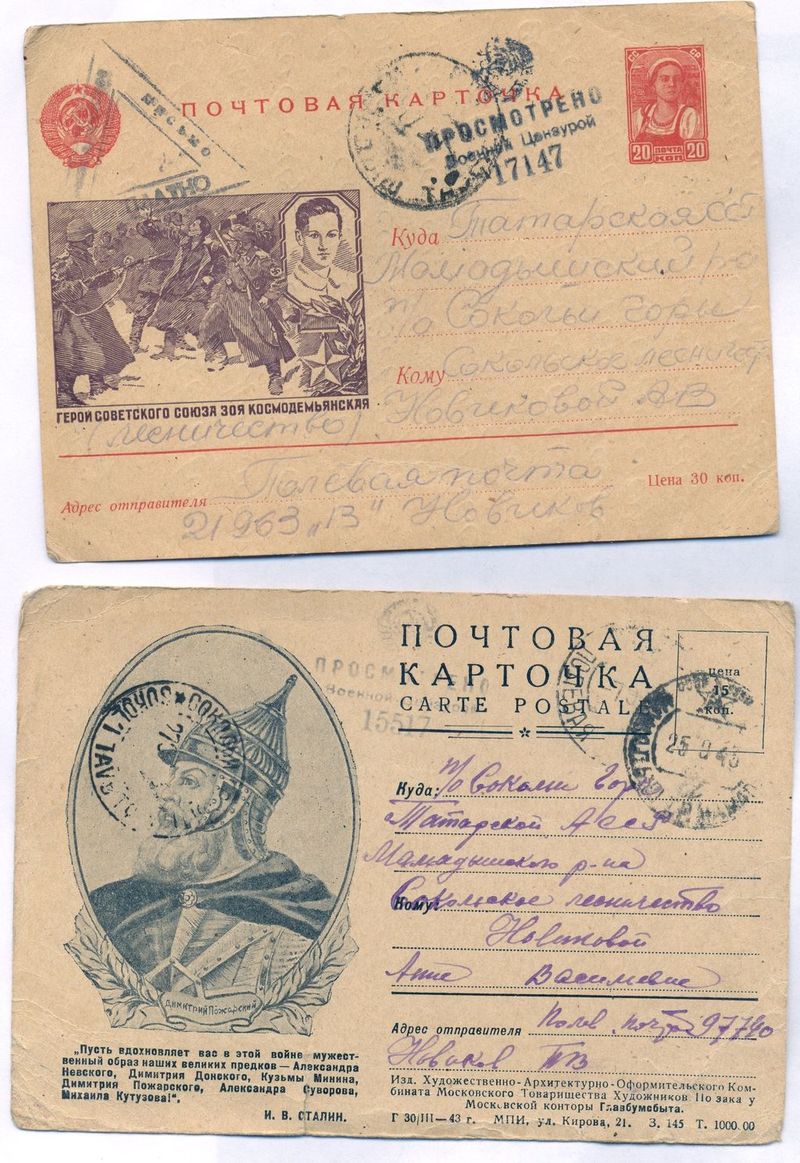 ПОЧТОВАЯ КАРТОЧКА
письмо
ПРОСМОТРЕНО
Военной Цензурой
17147
СС СР
20 ПОЧТА КОП 20
Куда Татарская ССР
Мамодышский ра
п/о Сокольи горы
Кому Сокольское лесничес
Новиковой А В
ГЕРОЙ СОВЕТСКОГО СОЮЗА ЗОЯ КОСМОДЕМЬЯНСКАЯ
(лесничество)
Цена 30 коп.
Адрес отправителя Полевая почта
21963 „В" Новиков
ПОЧТОВАЯ
КАРТОЧКА
CARTE POSTALE
цена
15
коп.
ПРОСМОТРЕНО
Военной
15517
25 8 43
Куда: п/о Сокольи Горы
Татарской АССР
Мамадышского р-на
Кому: Сокольское лесничество
Новиковой
Анне Васильевне
Адрес отправителя Полев. почта 97740
Новиков
ДИМИТРИЙ ПОЖАРСКИЙ
„Пусть вдохновляет вас в этой войне мужест-
венный образ наших великих предков — Александра
Невского, Димитрия Донского, Кузьмы Минина,
Димитрия Пожарского, Александра Суворова,
Михаила Кутузова!".
И. В. СТАЛИН.
Изд. Художественно-Архитектурно-Оформительского Ком-
бината Московского Товарищества Художников По заказу
Московской конторы Главбумсбыта.
Г 30/III—43 г. МПИ, ул. Кирова, 21. З. 145 Т. 1000.00